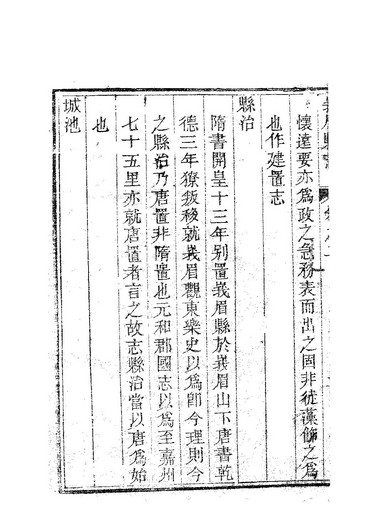 懷遠要亦爲政之急務表而出之固非徒藻飾之爲
也作建置志
縣治
隋書開皇十三年别置峩眉縣於峩眉山下唐書乾
德三年獠叛移就峩眉觀東樂史以爲卽今理則今
之縣治乃唐置非隋置也元和郡國志以爲至嘉州
七十五里亦就唐置者言之故志縣治當以唐爲始
也
城池